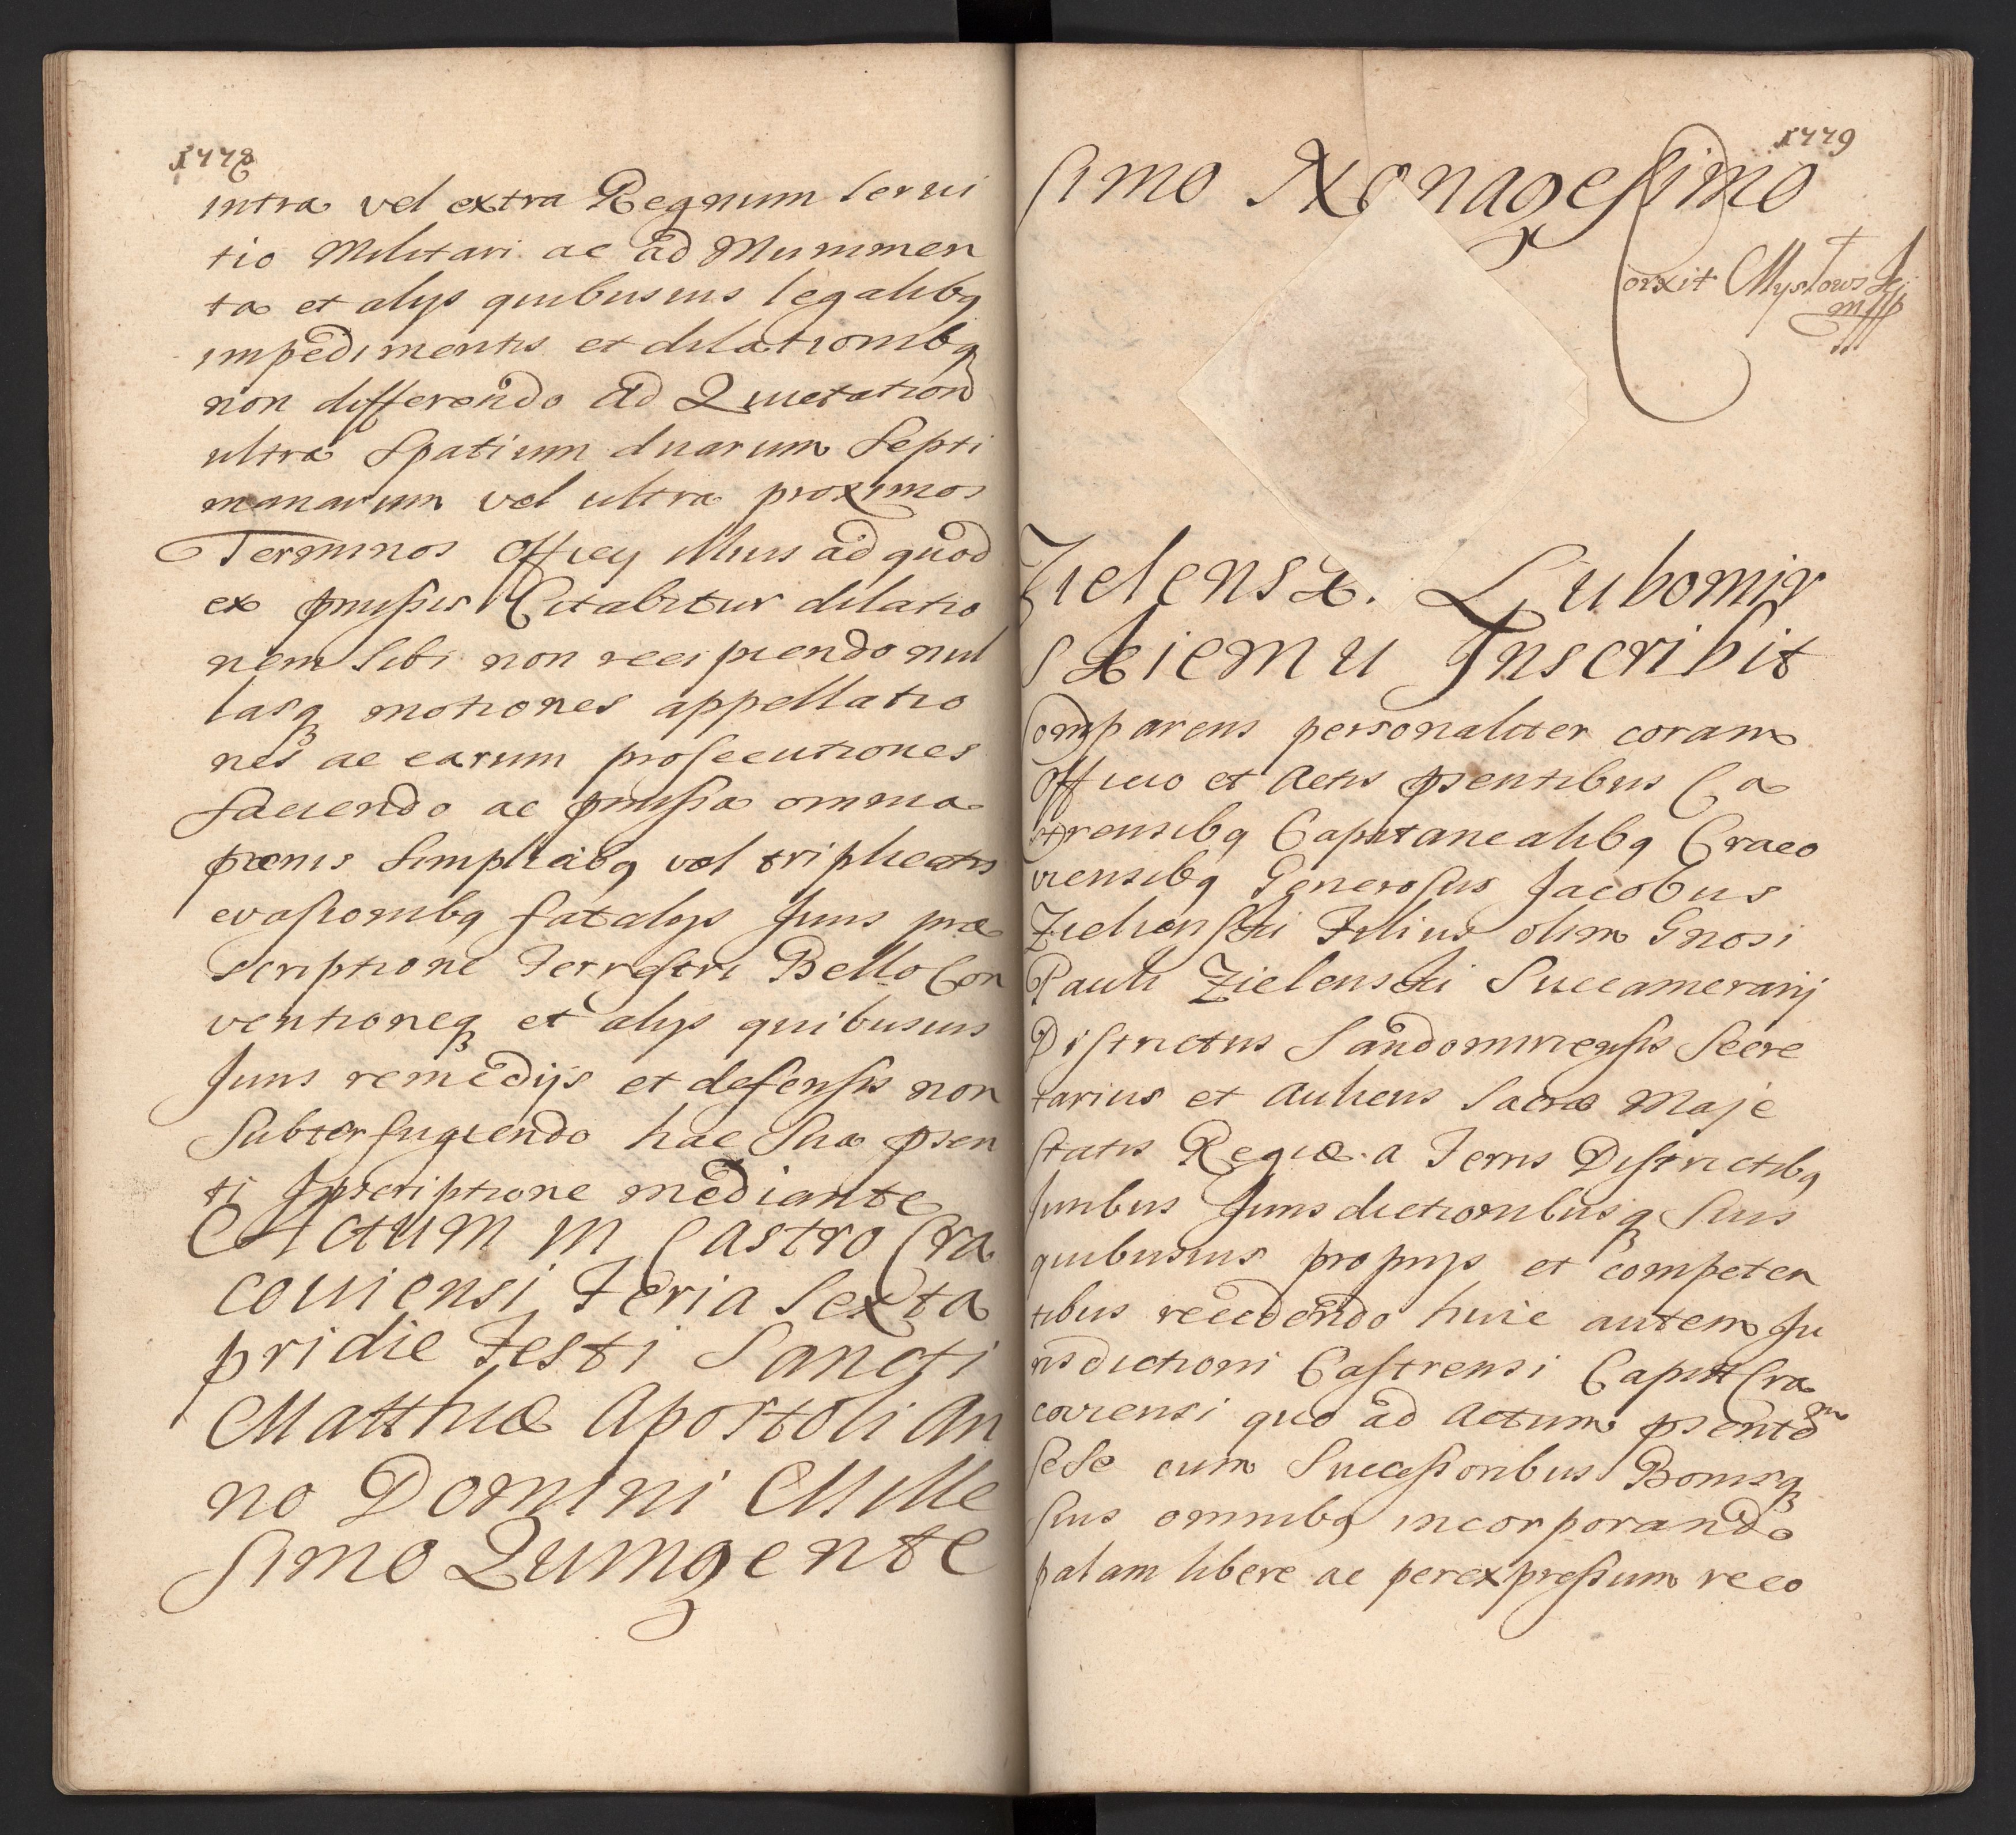 1778
intra vel extra Regnum servi
tio Militari ac ad Mummen
ta et alys quibusuis legalibq
impedimentis et dilationibq
non differendo ad Quietation
ultra Spatium duarum Septi
manarum vel ultra proximos
Terminos Officy illius ad quod
ex pmissis Citabitur dilatio
nem sibi non recipiendo nul
lasq motiones appellatio
nes ac earum prosecutiones
faciendo ac pmissa omnia
pœnis Simplicibq vel triplicatis
evasionibq fatalys Juris præ
scriptione Terrestri Bello Con
ventioneq et alys quibusuis
Juris remedijs et defensis non
Subterfugiendo hac Sua psen
ti Inscriptione mediante
Actum in Castro Cra
couiensi Feria Sexta
pridie Festi Sancti
Matthiæ Apostoli An
no Domini Mille
simo Quingente
1779
simo Nonagesimo
Corxit Mysłowski
mpp
Zielensk. Lubomir
skiemu Inscribit
Comparens personaliter coram
Officio et Actis psentibus Ca
strensibq Capitanealibq Craco
viensibq Generosus Jacobus
Zielienski Filius olim Gnosi
Pauli Zielenski Succamerarij
Districtus Sandomiriensis Secre
tarius et Aulicus Sacræ Maje
statis Regiæ a Terris Districtibq
Juribus Jurisdictionibusq Suis
quibusuis propriys et competen
tibus recedendo huic autem Ju
risdictioni Castrensi Capitt Cra
coviensi quo ad Actum psentem
sese cum Successoribus Bonisq
suis omnibq incorporando
palam libere ac per expressum reco